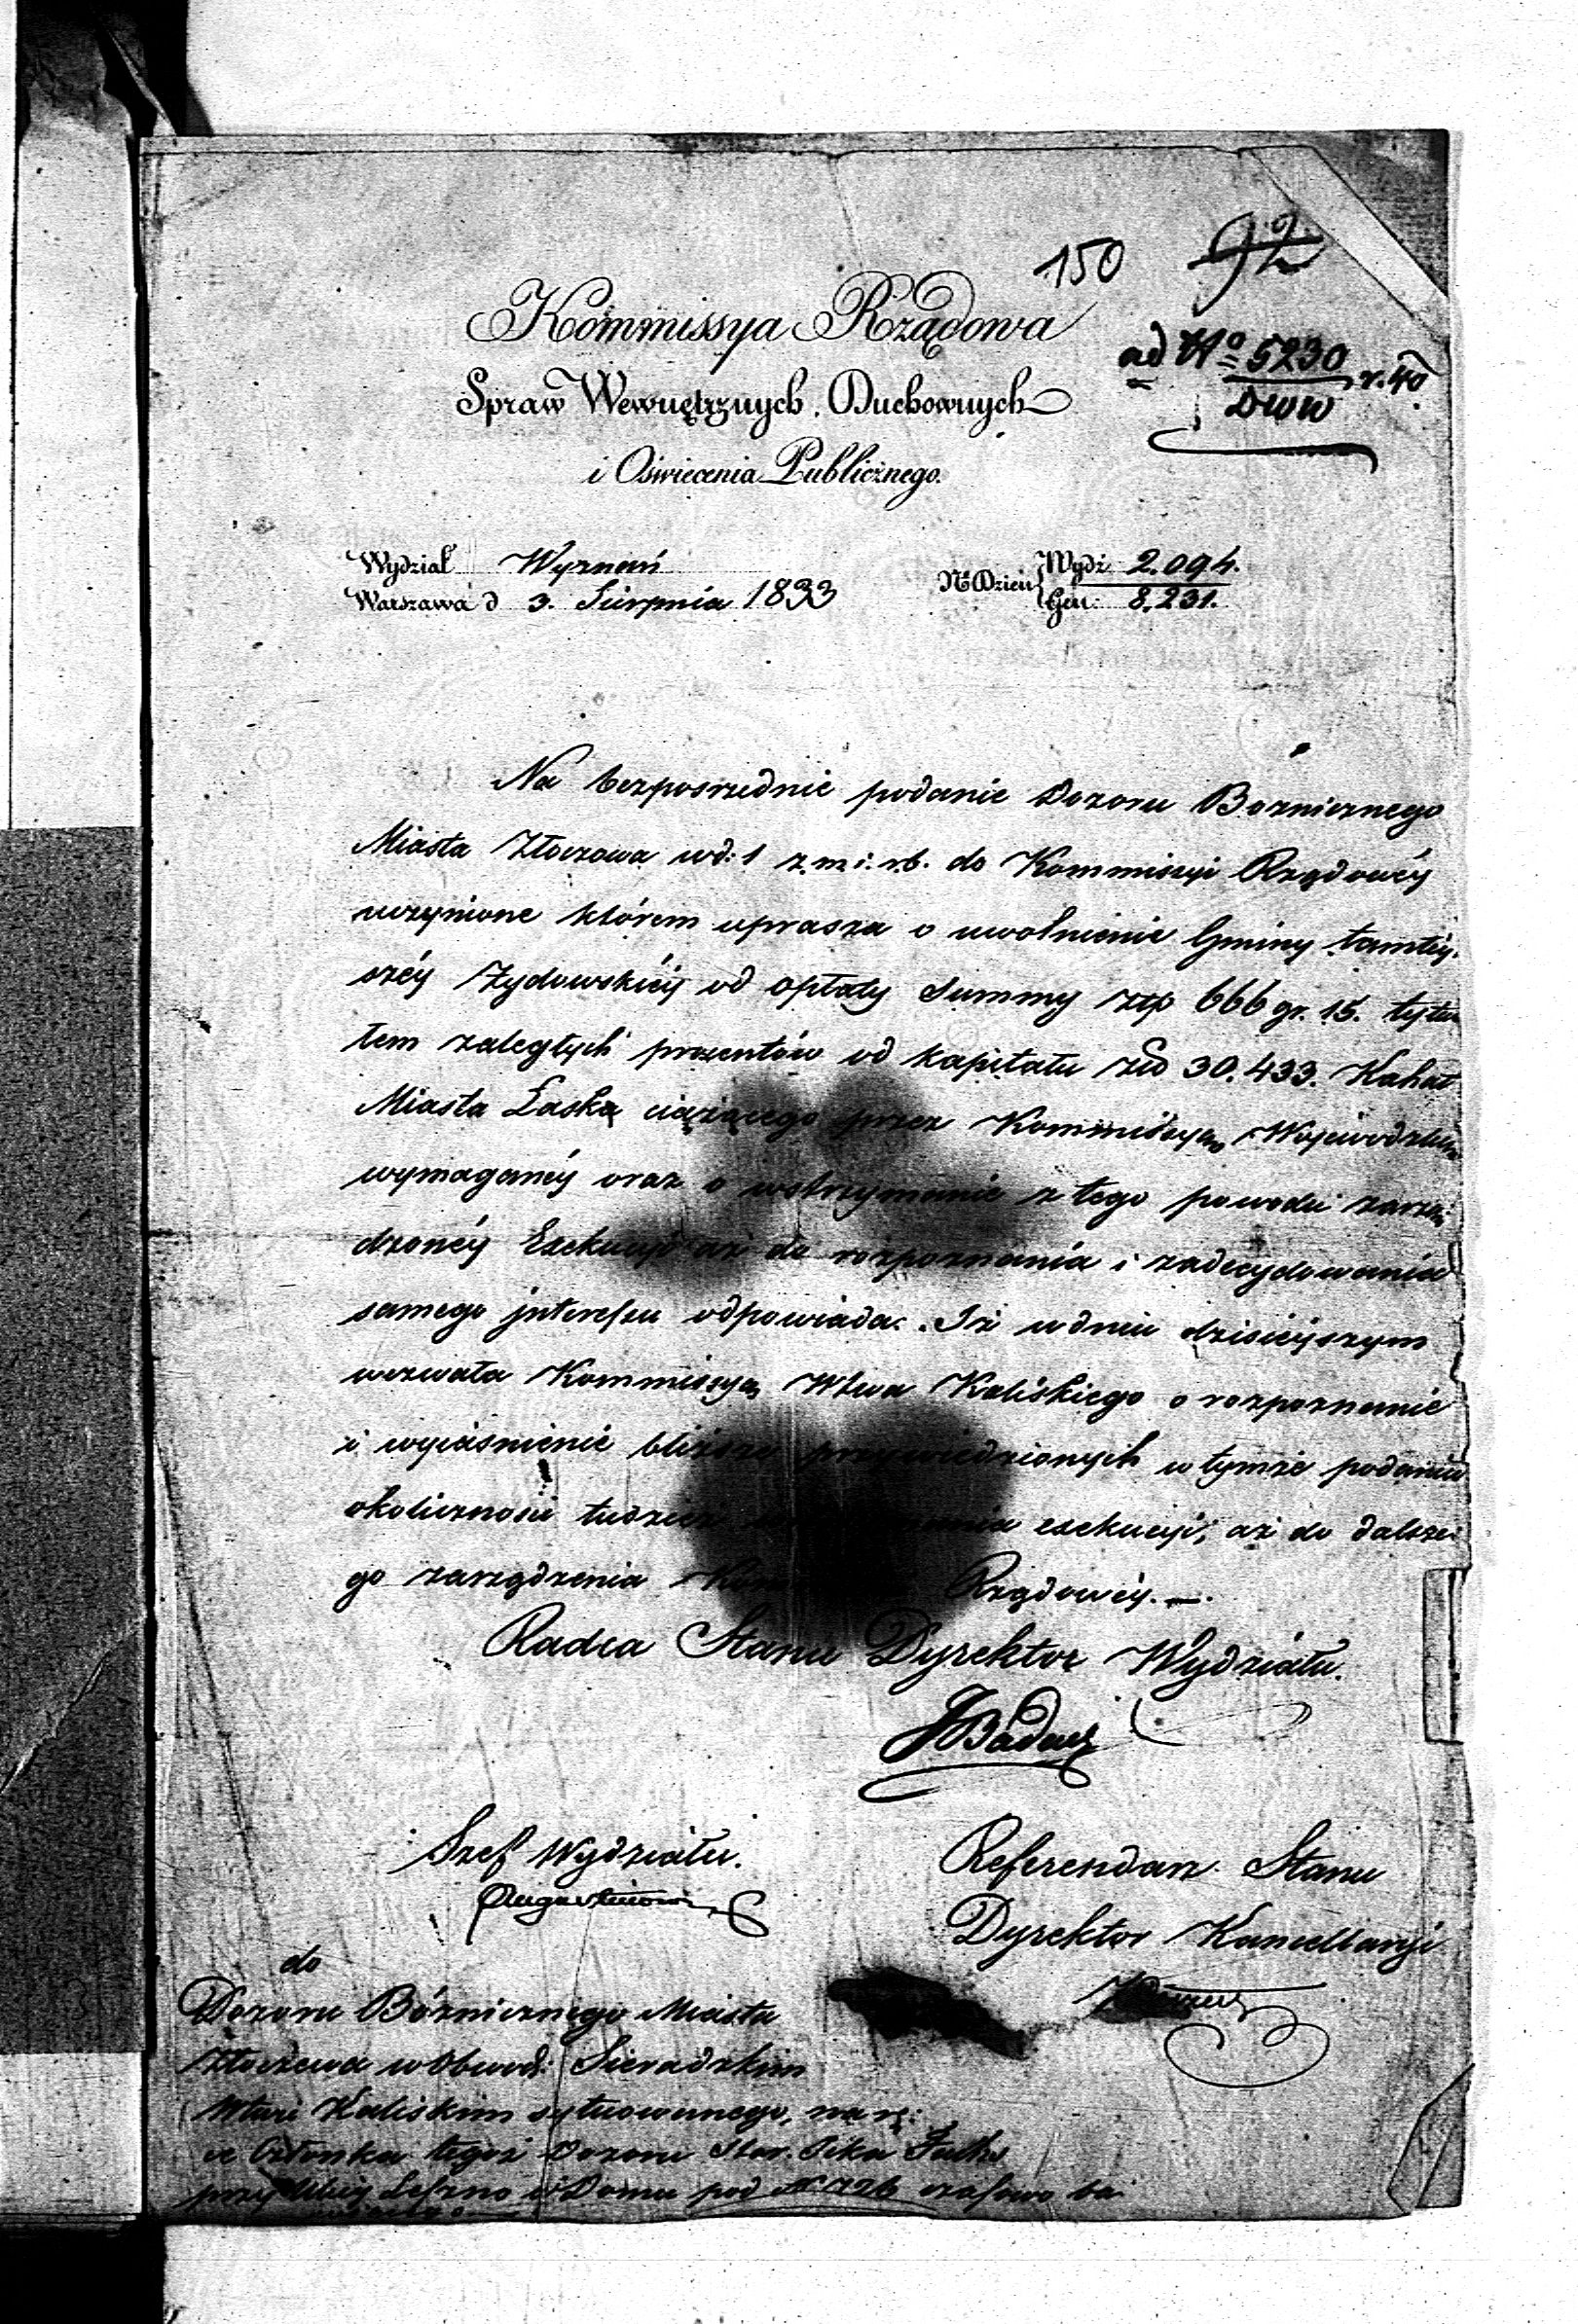 150
92
Kommissya Rządowa
ad No 5230 r. 40
DWW
Spraw Wewnętrznych, Duchownych
i Oświecenia Publicznego.
Wydział Wyznań
Warszawa d 3. Sierpnia 1833
No Dzien Wydż 2.094.
Gen: 8,231.
Na bezposrzednie podanie Dozoru Boznicznego
Miasta Złoczowa w d: 1 z. m. i. r. b. do Kommissyi Rządowéy
uczynione którem uprasza o uwolnienie Gminy tamtéy-
széy Żydowskiéy od opłaty Summy Złp 666 gr. 15. tytu
łem zaległych procentów od kapitału Złp 30.433. Kahał
Miasta Łaska ciążącego przez Kommissyą Wojewodzką
wymaganéy oraz o wstrzymanie z tego powodu zarzą
dzonéy Exekucyi aż do rozpoznania i zadecydowania
samego interessu odpowiada: Iż w dniu dzisiéyszym
wezwała Kommissyą Wtwa Kaliskiego o rozpoznanie
i wyiaśnienie bliższe przywiedzionych w tymże podaniu
okoliczności tudzież exekucyi, aż do dalsze-
go zarządzenia Rządowéy. —.
Radca Stanu Dyrektor Wydziału.
Szef Wydziału.
Referendarz Stanu
Dyrektor Kancellaryi
do
Dozoru Bóżnicznego Miasta
Złoczewa w Obwod: Sieradzkim
Wtwie Kaliskim sytuowanego, na rę:
ce Członka tegoż Dozoru
przy Ulicy Leszno w Domu pod No 726 czasowo ba